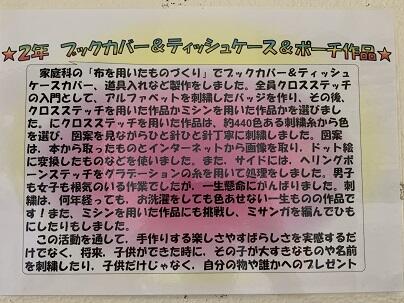 ★2年 ブックカバー&ティッシュケース&ポーチ作品★
家庭科の「布を用いたものづくり」でブックカバー&ティッシュ
ケースカバー、道具入れなど製作をしました。全員クロスステッチ
の入門として、アルファベットを刺繍したバッジを作り、その後、
クロスステッチを用いた作品かミシンを用いた作品かを選びまし
た。にクロスステッチを用いた作品は、約440色ある刺繍糸から色
を選び、図案を見ながらひと針ひと針丁寧に刺繍しました。図案
は、本から取ったものとインターネットから画像を取り、ドット絵
に変換したものなどを使いました。また、サイドには、ヘリングボ
ーンステッチをグラデーションの糸を用いて処理をしました。男子
も女子も根気のいる作業でしたが、一生懸命にがんばりました。刺
繍は、何年経っても、お洗濯をしても色あせない一生ものの作品で
す!また、ミシンを用いた作品にも挑戦し、ミサンガを編んでひも
にしたりもしました。
この活動を通して、手作りする楽しさやすばらしさを実感するだ
けでなく、将来、子供ができた時に、その子が大すきなものや名前
を刺繍したり、子供だけじゃなく、自分の物や誰かへのプレゼント